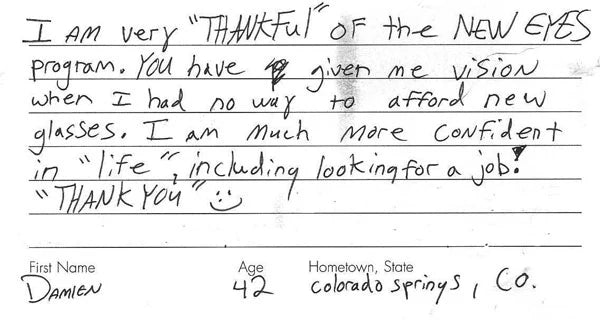 I AM very "THANKFul" OF the NEW EYES
program. YOU have given me vision
when I had no way to afford new
glasses. I am much more confident
in "life", including looking for a job!
"THANK YOU" :)
First Name Age Hometown, State
DAMIEN 42 Colorado Springs, CO.